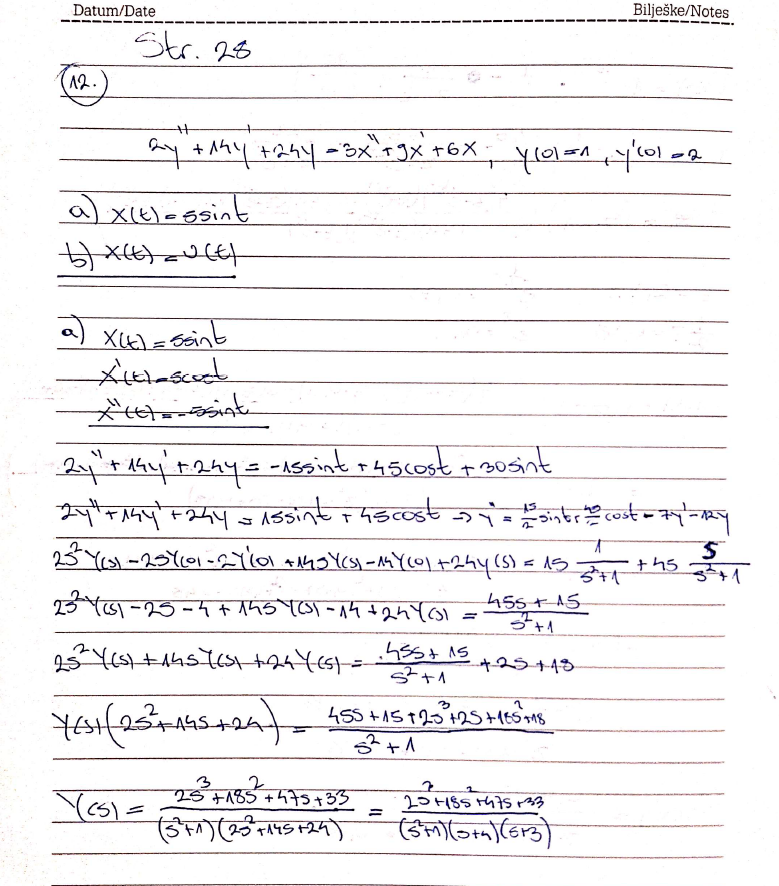 Datum/Date Bilješke/Notes
Str. 28
12.
2y'' + 14y' + 24y = 3x'' + 9x' + 6x, y(0) = 1, y'(0) = 2
a) x(t) = 5sint
b) x(t) = u(t)
a) x(t) = 5sint
x'(t) = 5cost
x''(t) = -5sint
2y'' + 14y' + 24y = -15sint + 45cost + 30sint
2y'' + 14y' + 24y = 15sint + 45cost → y'' = 15/2 sint + 45/2 cost - 7y' - 12y
2s²Y(s) - 2sY(0) - 2Y'(0) + 14sY(s) - 14Y(0) + 24y(s) = 15 1/(s²+1) + 45 s/(s²+1)
2s²Y(s) - 2s - 4 + 14sY(s) - 14 + 24Y(s) = (45s + 15)/(s²+1)
2s²Y(s) + 14sY(s) + 24Y(s) = (45s + 15)/(s²+1) + 2s + 18
Y(s)(2s² + 14s + 24) = (45s + 15 + 2s³ + 2s + 18s² + 18)/(s²+1)
Y(s) = (2s³ + 18s² + 47s + 33)/((s²+1)(2s² + 14s + 24)) = (2s³ + 18s² + 47s + 33)/((s²+1)(s+4)(s+3))